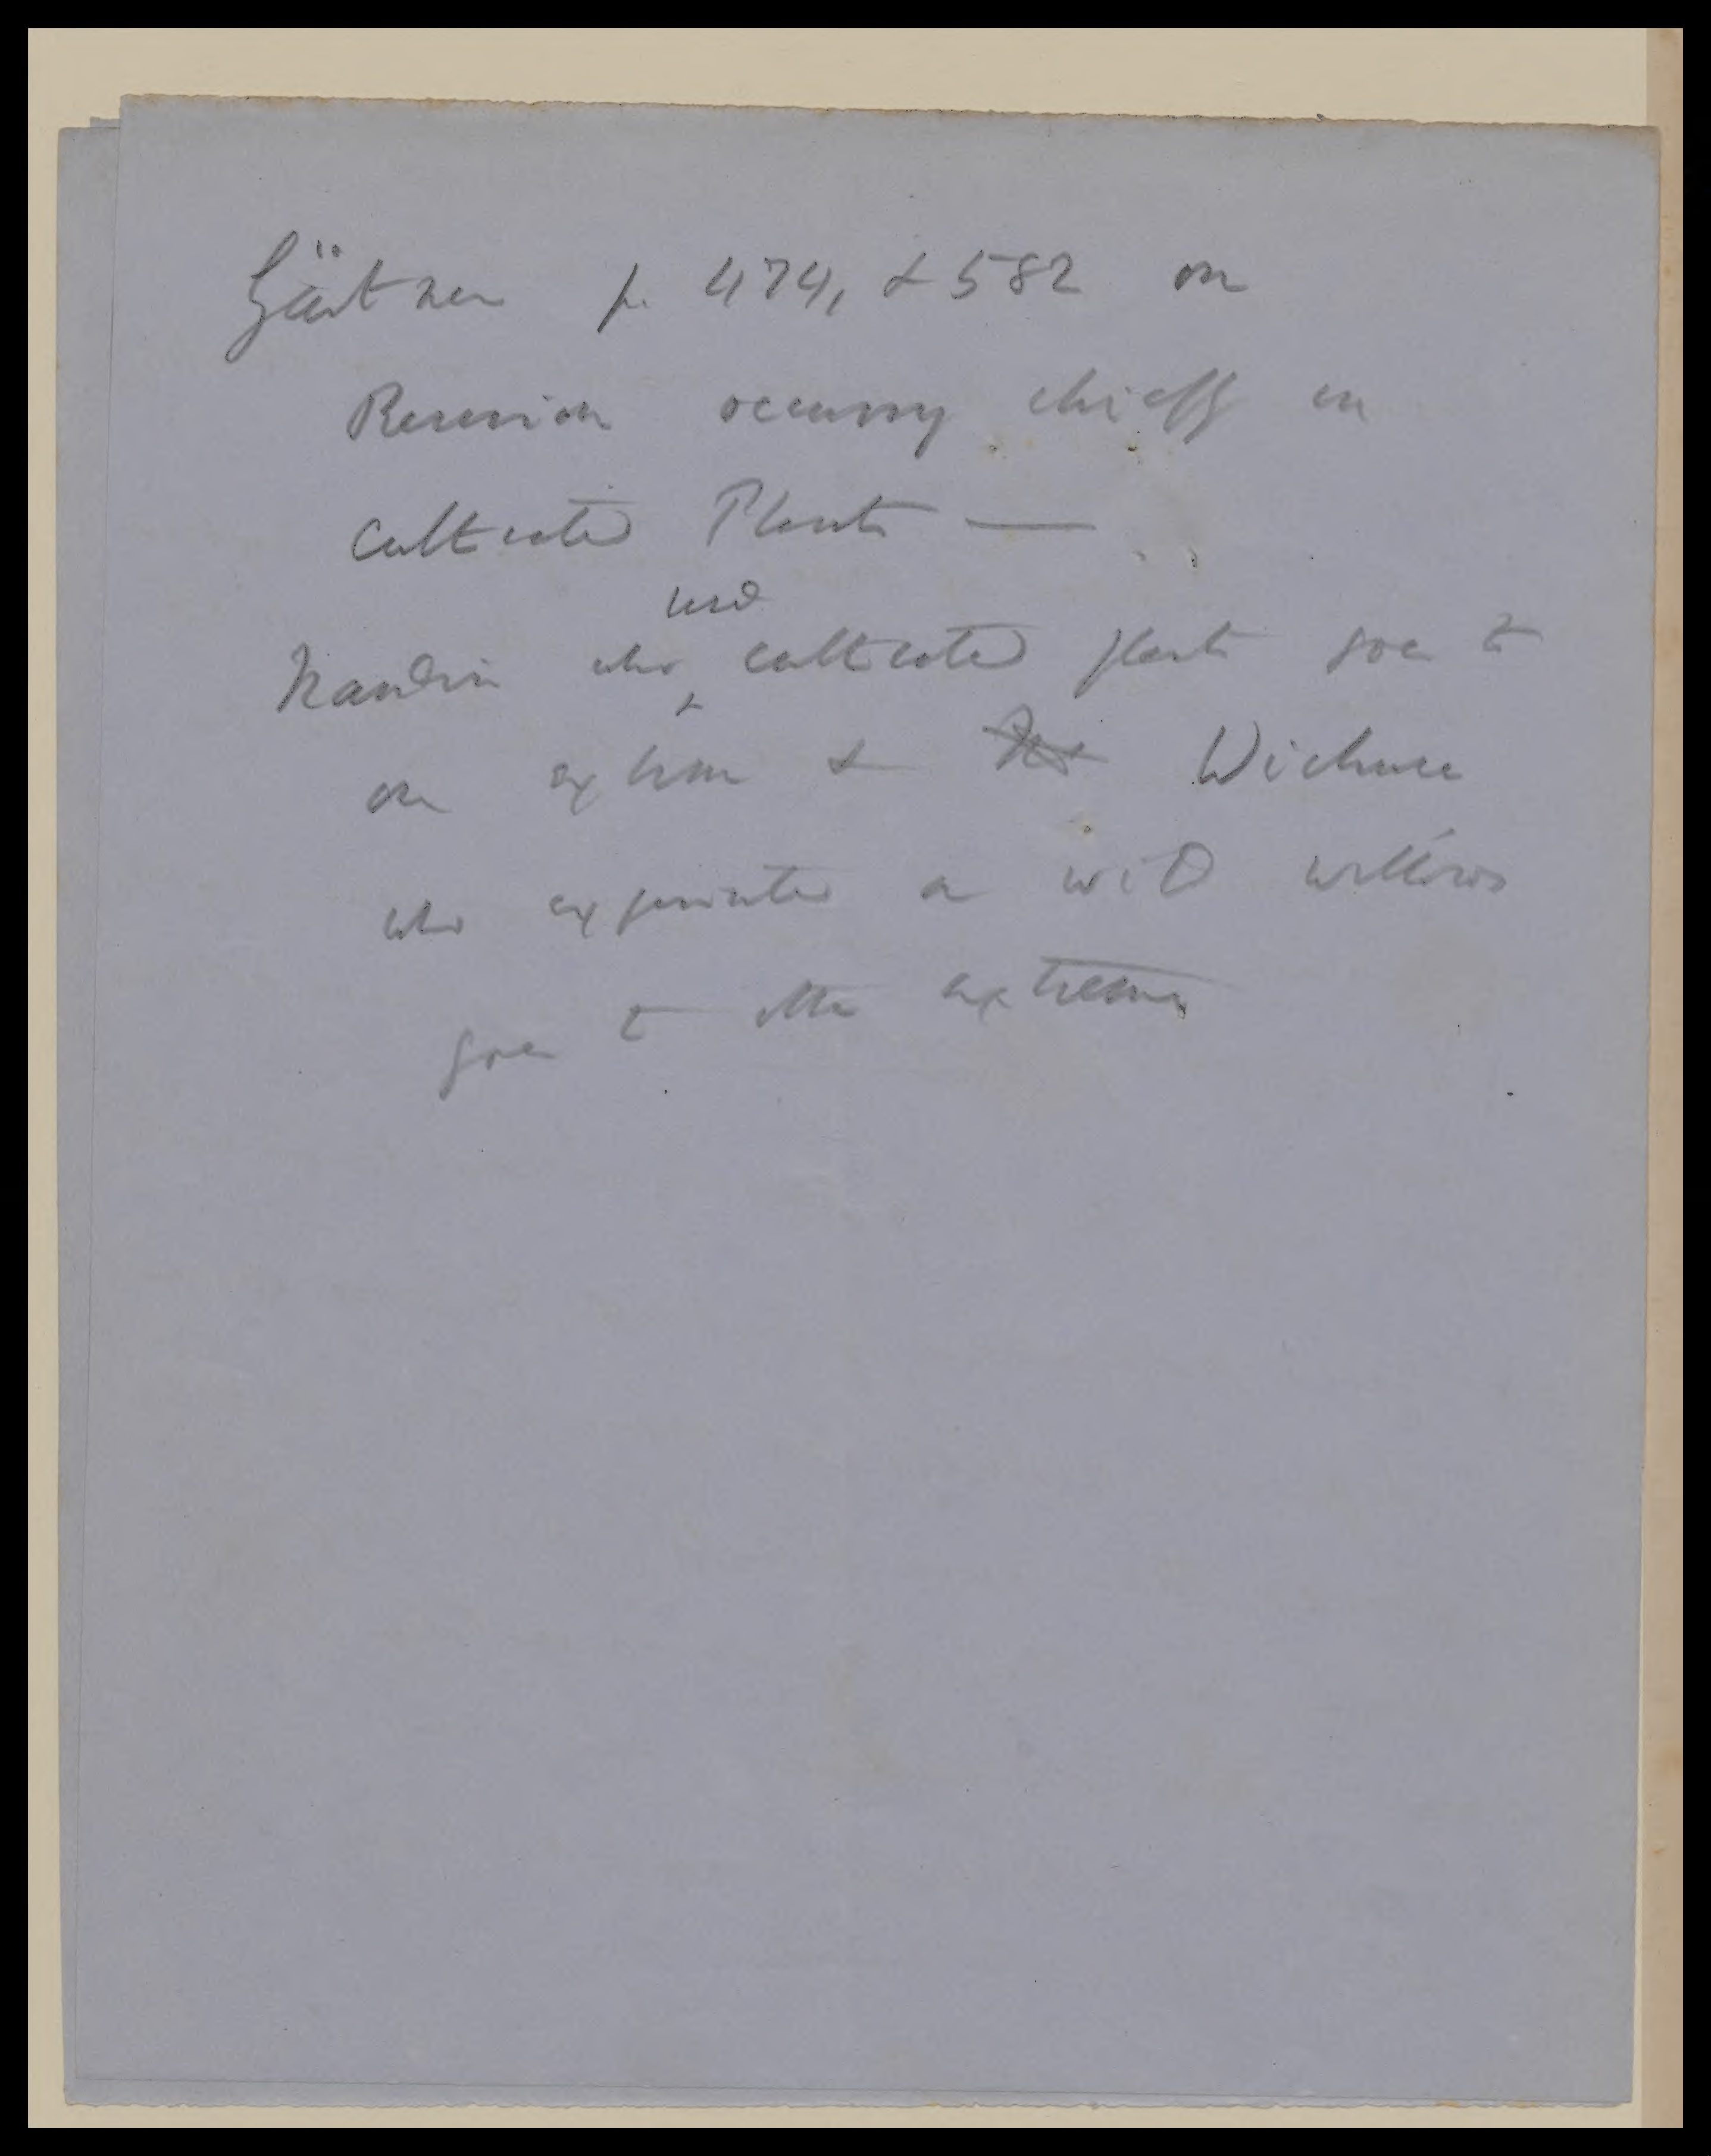 Gärtner p. 474, & 582 on
Reversion occurring chiefly in
cultivated Plants —
used
Naudin who cultivated plants goes to
one extreme & Wichura
who experimented on wild willows
goes to other extreme